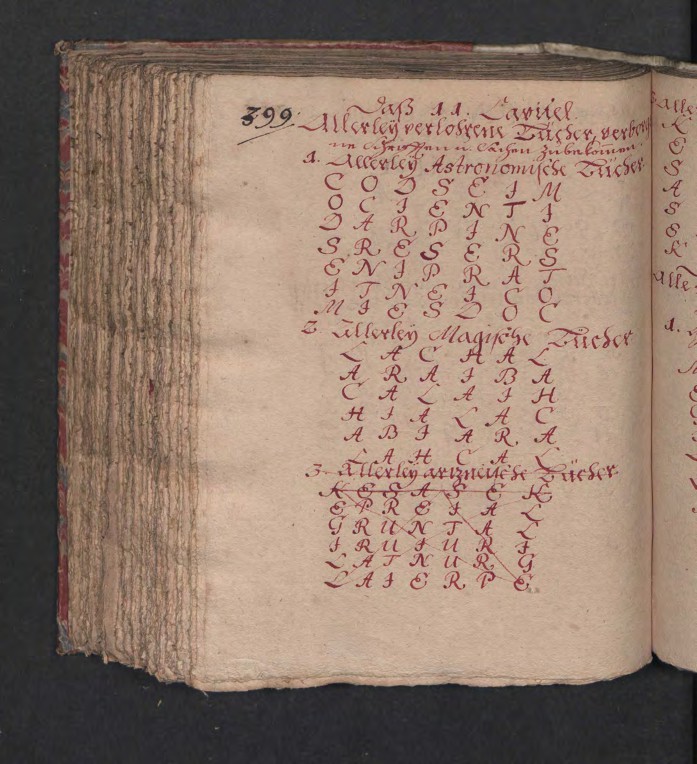 399.
Daß 11. Capitel
Allerley verlohrene Bücher, verborge
ne Schrifften u. Sachen zubekommen
1. Allerley Astronomische Bücher
C O D S E I M
O C I E N T I
D A R P I N E
S R E S E R S
E N I P R A T
I T N E I C O
M I E S D O C
2. Allerley Magische Bücher
L A C H A L
A R A I B A
C A L A I H
H I A L A C
A B I A R A
L A H C A L
3. Allerley artzneische Bücher
K E S A S E K
E P R E I A L
G R U N T A L
I R U I U R I
L A T N U R G
L A I E R P E
Alle
K
E
S
A
S
E
K
Alle
1.